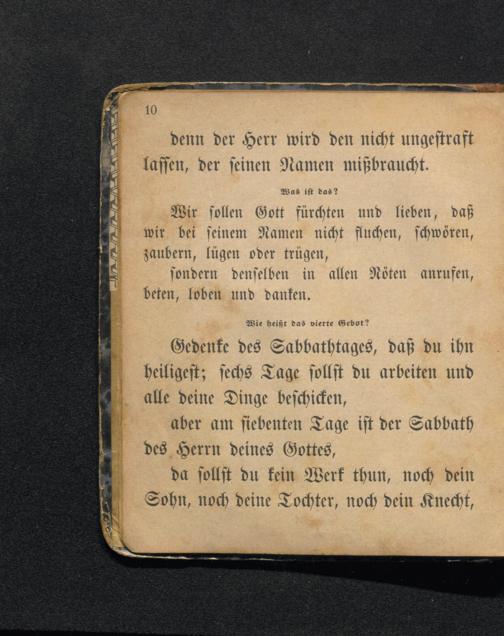 10
denn der Herr wird den nicht ungestraft
lassen, der seinen Namen mißbraucht.
Was ist das?
Wir sollen Gott fürchten und lieben, daß
wir bei seinem Namen nicht fluchen, schwören,
zaubern, lügen oder trügen,
sondern denselben in allen Nöten anrufen,
beten, loben und danken.
Wie heißt das vierte Gebot?
Gedenke des Sabbathtages, daß du ihn
heiligest; sechs Tage sollst du arbeiten und
alle deine Dinge beschicken,
aber am siebenten Tage ist der Sabbath
des Herrn deines Gottes,
da sollst du kein Werk thun, noch dein
Sohn, noch deine Tochter, noch dein Knecht,